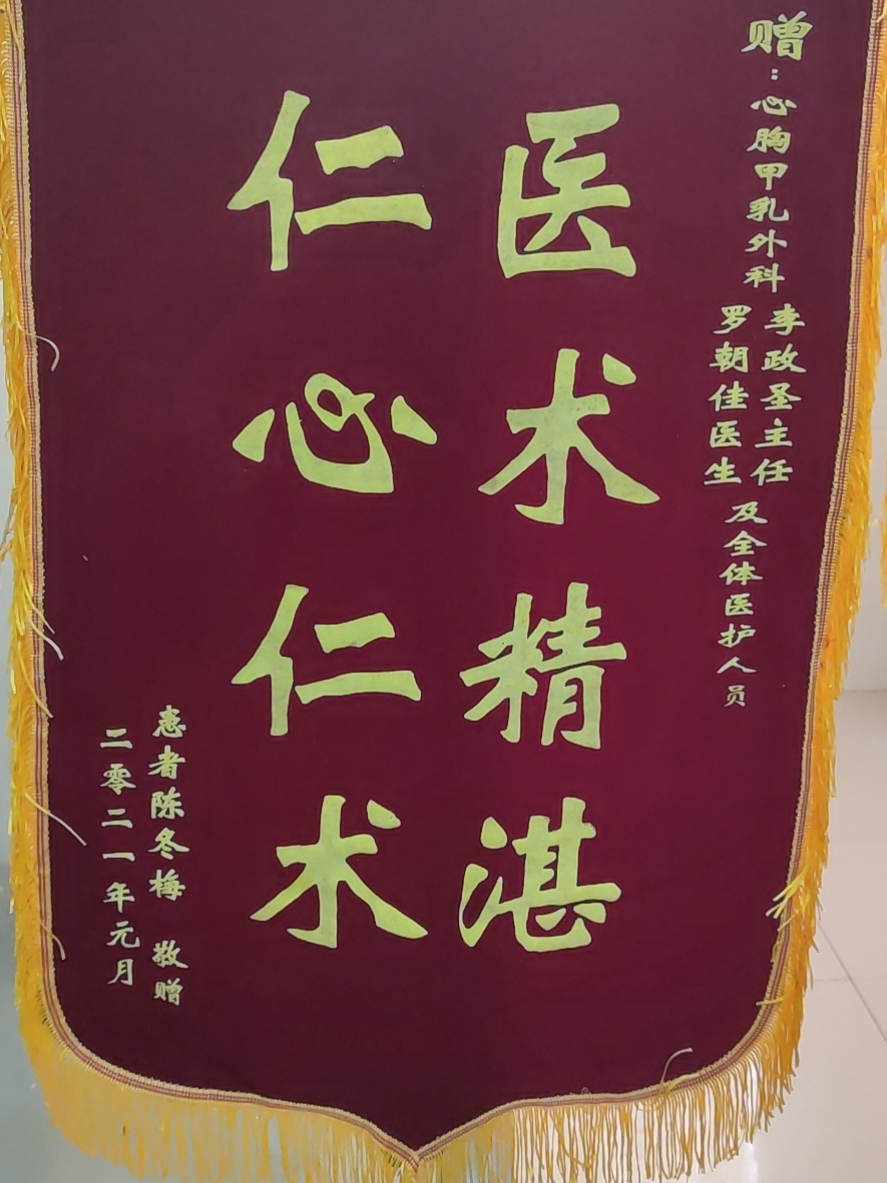 赠：心胸甲乳外科
李政圣主任
罗朝佳医生
及全体医护人员
医术精湛
仁心仁术
患者陈冬梅 敬赠
二零二一年元月